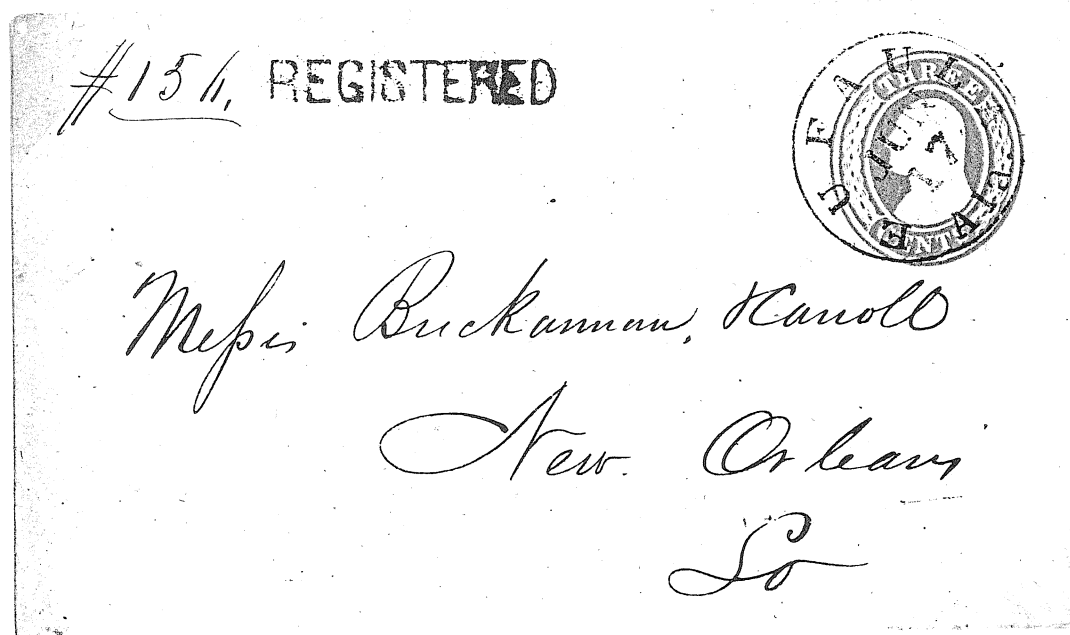 #154. REGISTERED
EUFAULA ALA
JUN
17
THREE
CENTS
Messrs Buckannan, Carroll
New Orleans
La